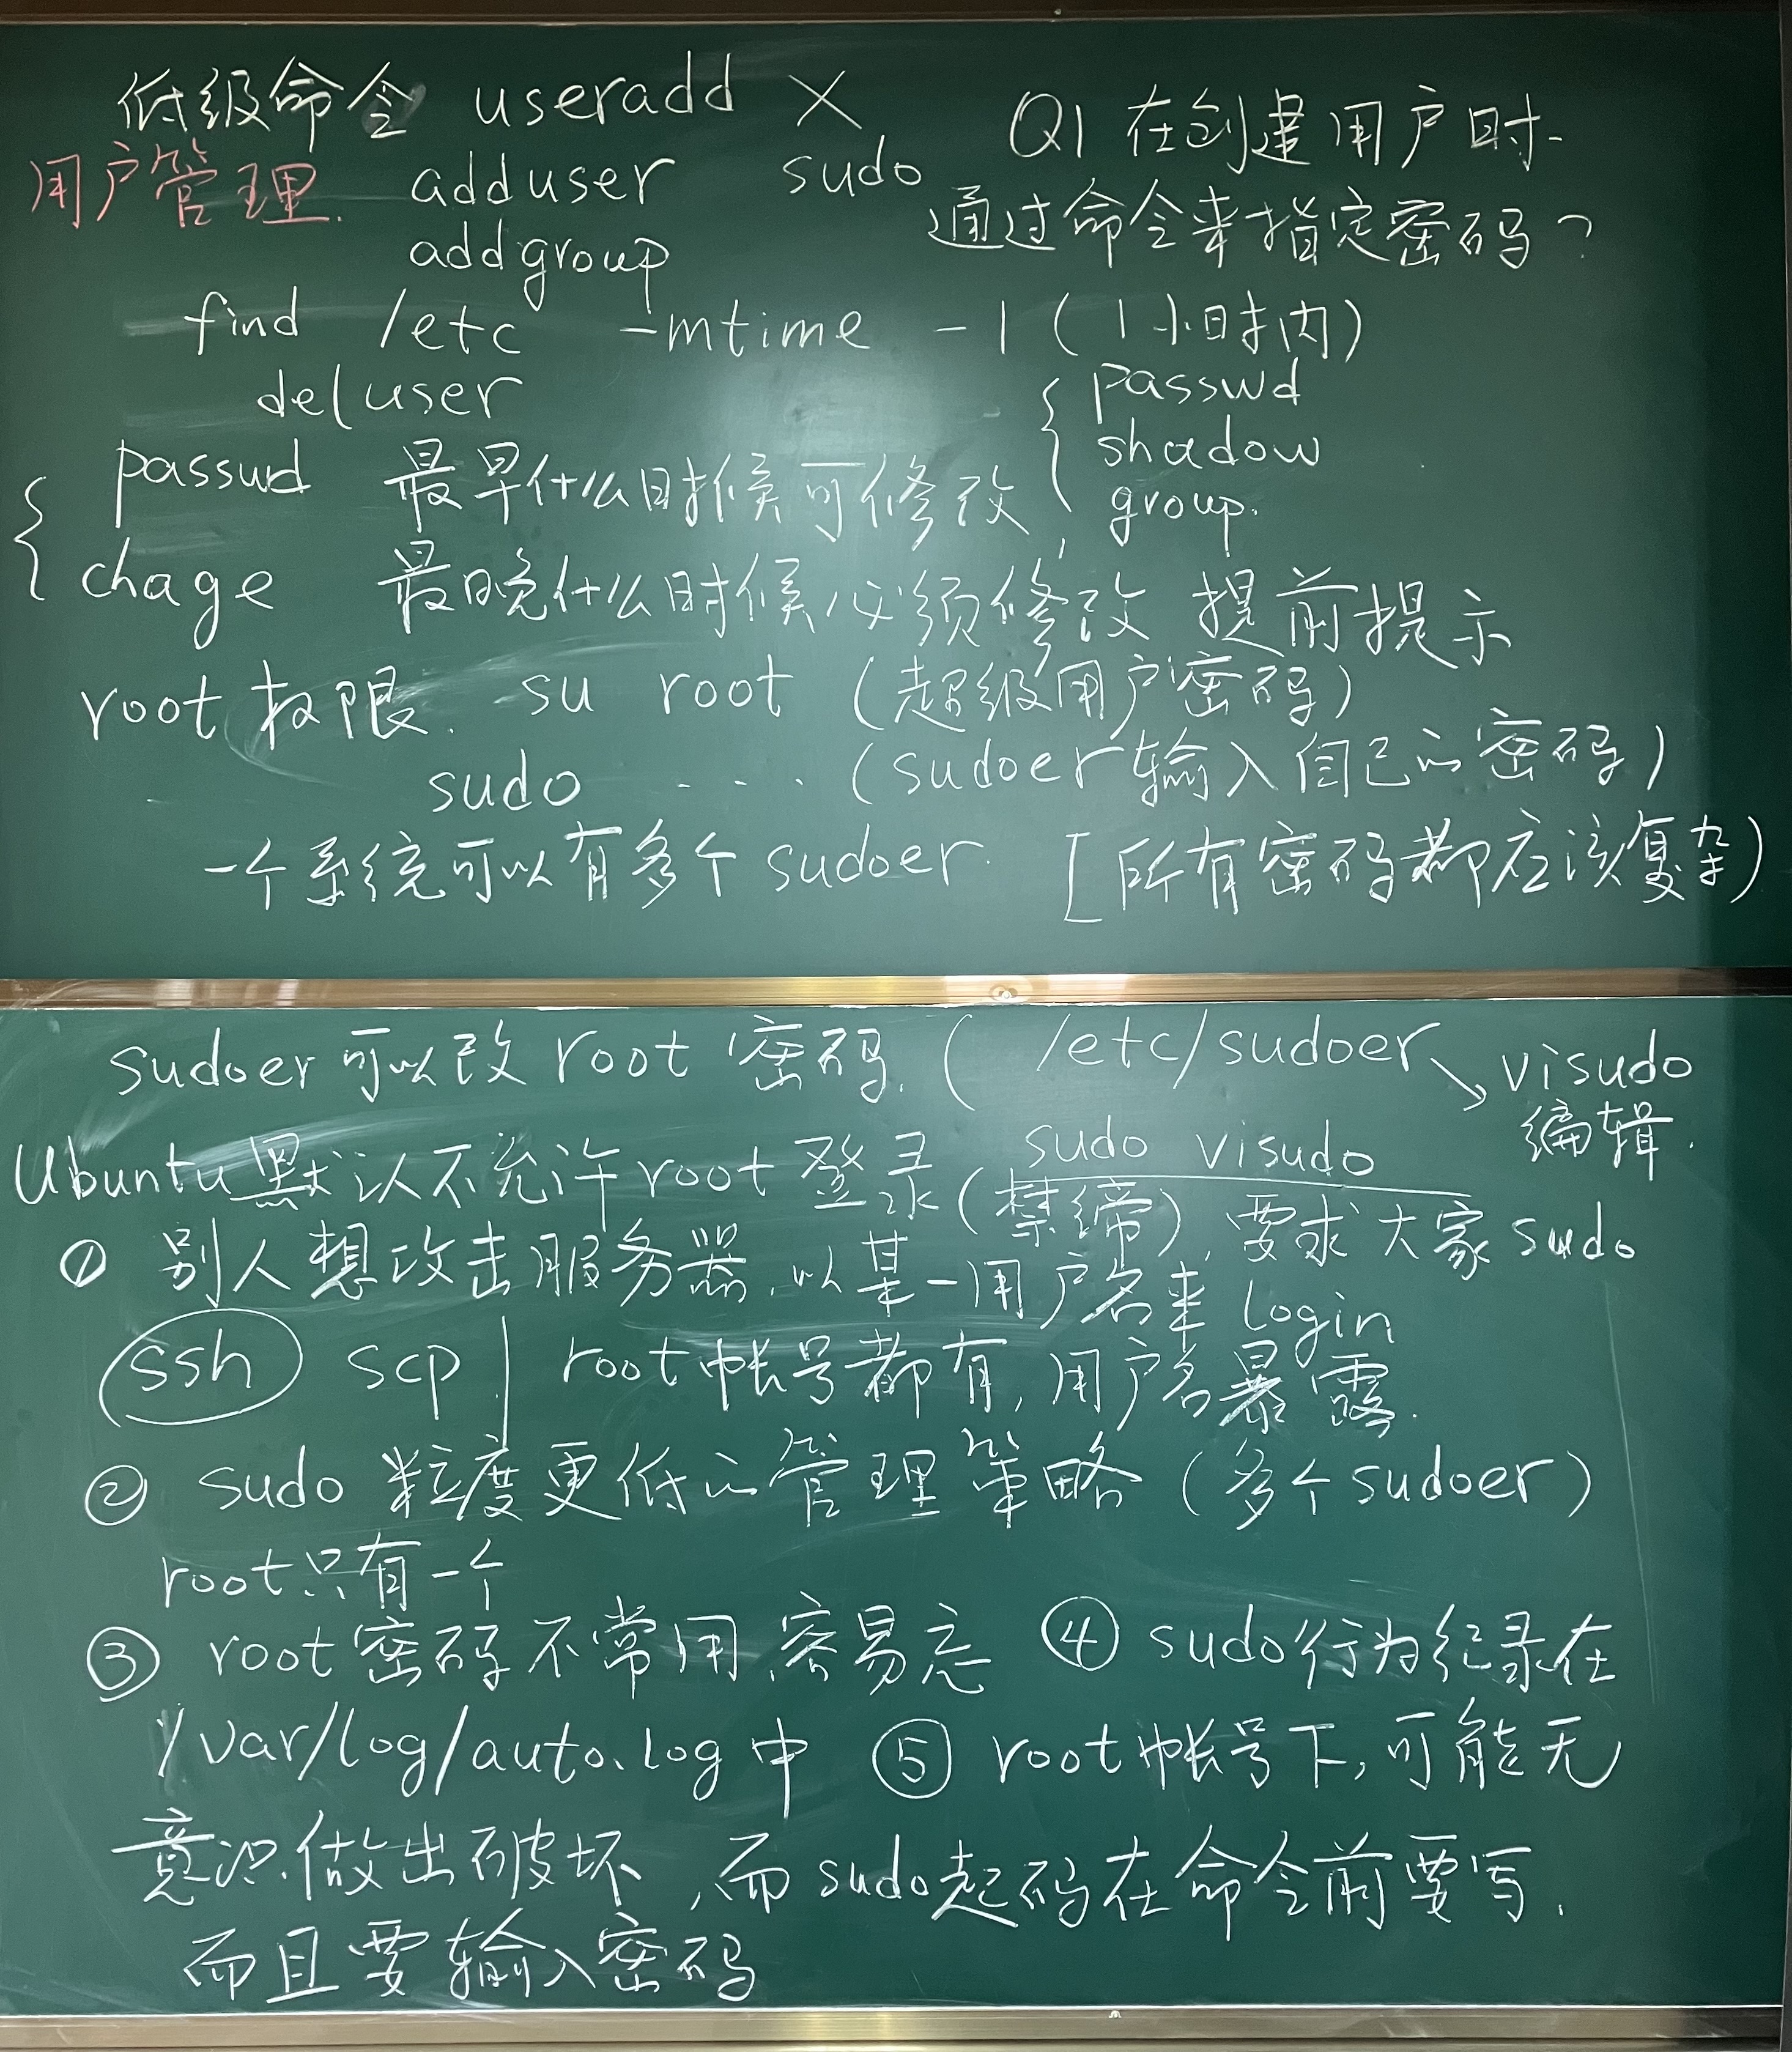 低级命令 useradd ×
用户管理. adduser sudo
addgroup
Q1 在创建用户时
通过命令来指定密码?
find /etc -mtime -1 (1小时内)
deluser
{ passwd
shadow
group.
{ passwd 最早什么时候可修改,
chage 最晚什么时候必须修改 提前提示
root 权限. su root (超级用户密码)
sudo ... (sudoer 输入自己的密码)
一个系统可以有多个 sudoer [所有密码都应该复杂)
sudoer 可以改 root 密码. ( /etc/sudoer ↘ visudo
编辑.
sudo visudo
Ubuntu 默认不允许 root 登录(禁缔), 要求大家 sudo
① 别人想攻击服务器, 以某一用户名来 login
ssh scp | root 帐号都有, 用户名暴露.
② sudo 粒度更低的管理策略 (多个 sudoer)
root 只有一个
③ root 密码不常用, 容易忘 ④ sudo 行为纪录在
/var/log/auto.log 中 ⑤ root 帐号下, 可能无
意识做出破坏, 而 sudo 起码在命令前要写.
而且要输入密码